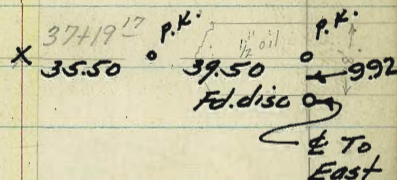 37+19 17 p.k. p.k.
1/2 oil
X 35.50 39.50 9.92
Fd. disc
℄ To
East